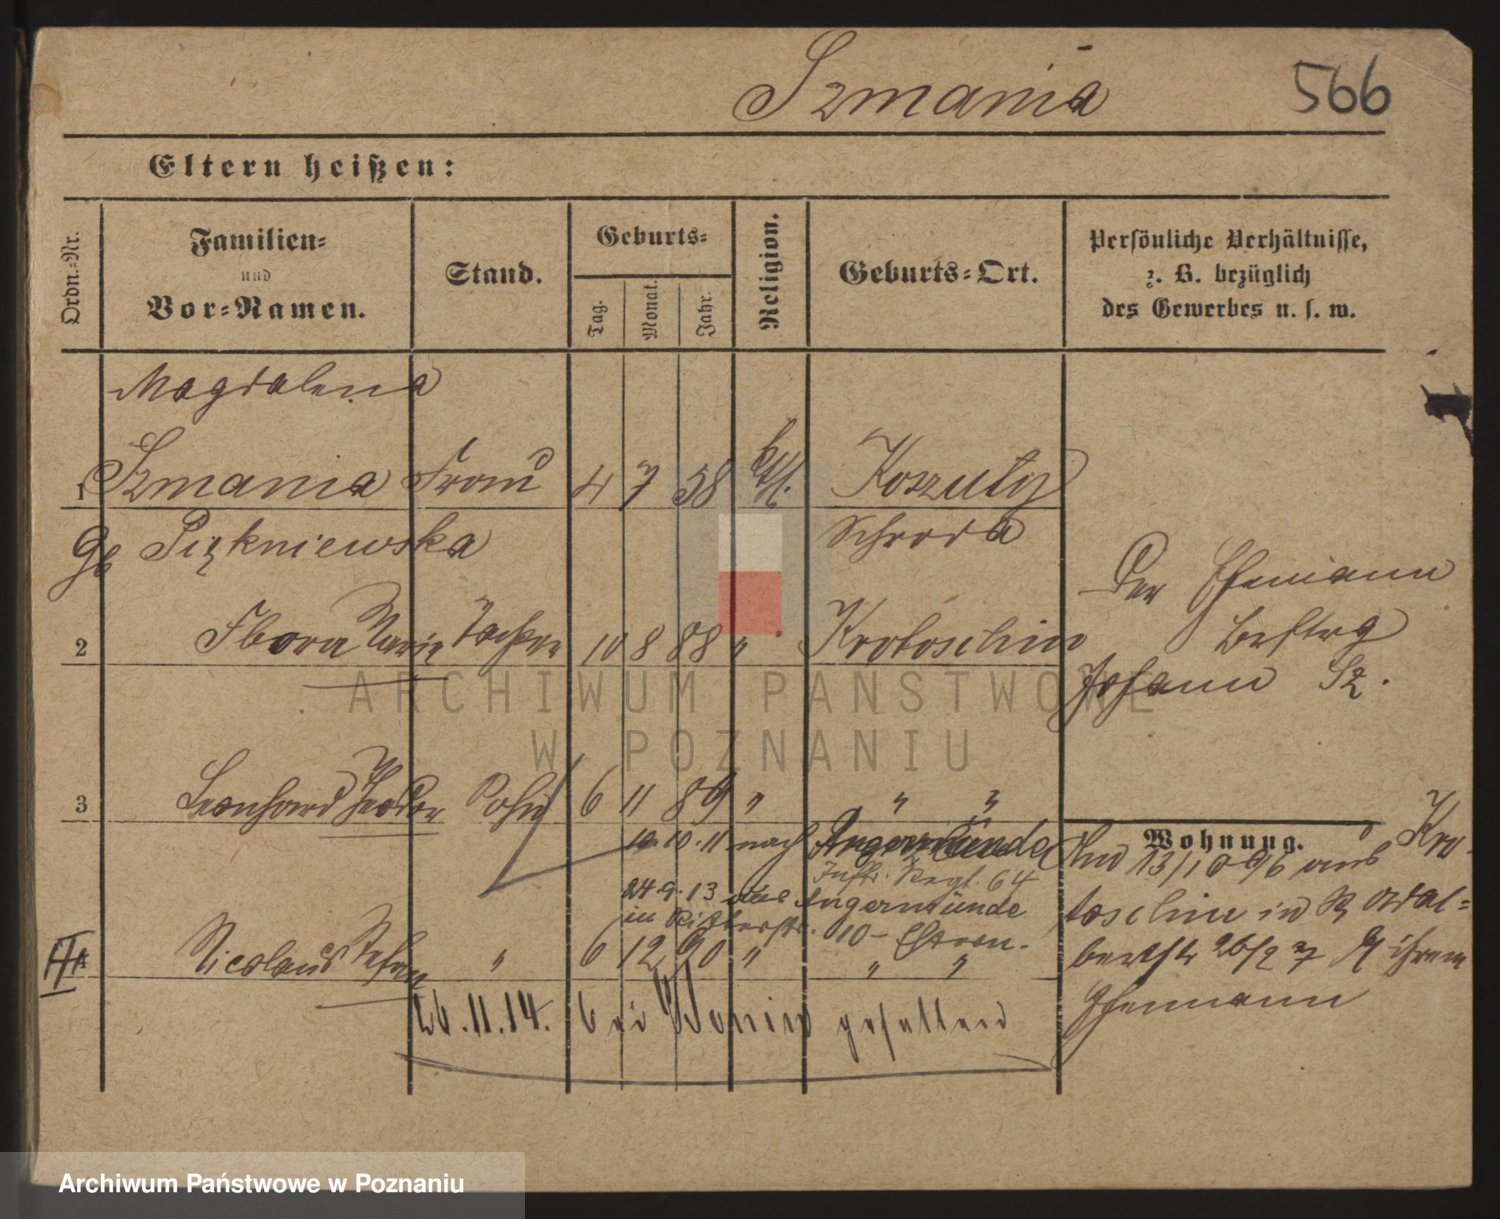 Szmania
566
Eltern heißen:
Ordn.-Nr.
Familien-
und
Vor-Namen.
Stand.
Geburts-
Tag.
Monat.
Jahr.
Religion.
Geburts-Ort.
Persönliche Verhältnisse,
z. B. bezüglich
des Gewerbes u. s. w.
Magdalena
1 Szmania Frau 4 7 58 kth. Koszuty
Gb Piękniewska Schroda
Der Ehemann
2 Flora Marie Tochter 10 8 88 " Krotoschin
Johann Sz.
3 Leonhard Theodor Sohn 6 11 89 " " "
Wohnung.
10. 10. 11 nach Angermünde
Inftr. Regt. 64
24. 9. 13 aus Angermünde
in Ritterstr. 10 – Eltern.
Nicolaus Stefan " 6 12 90 " " "
26. 11. 14. bei Wonin gefallen
13/10 96 aus Kro-
toschin in
26/2 97 ihrem
Ehemann
ARCHIWUM PAŃSTWOWE
W POZNANIU
Archiwum Państwowe w Poznaniu